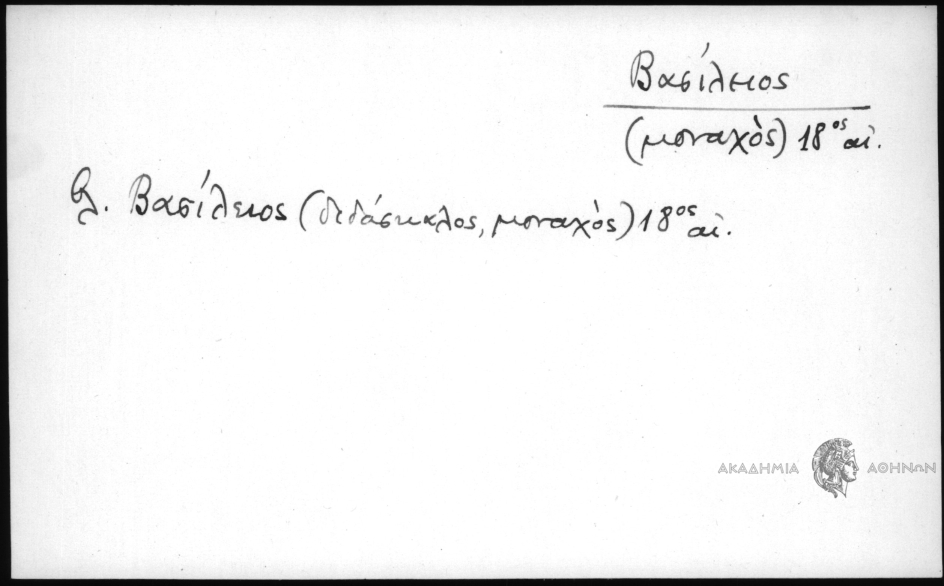 Βασίλειος
(μοναχὸς) 18ος αἰ.
βλ. Βασίλειος (διδάσκαλος, μοναχὸς) 18ος αἰ.
ΑΚΑΔΗΜΙΑ ΑΘΗΝΩΝ